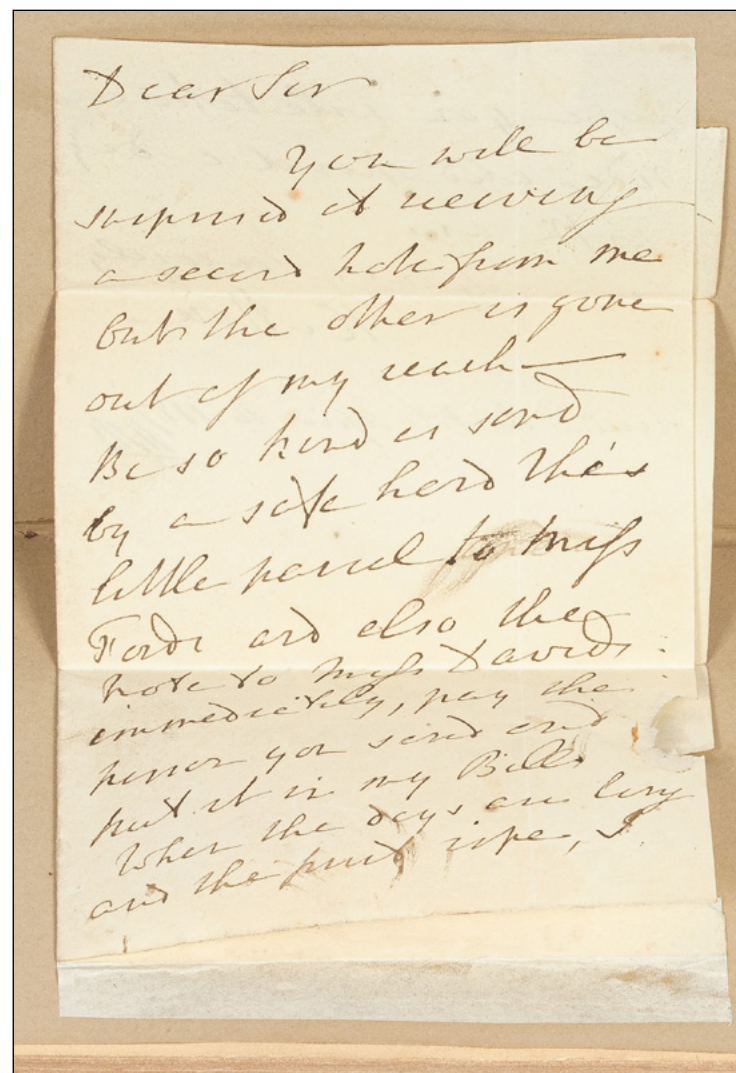 Dear Sir
You will be
surprised at receiving
a second note from me
but the other is gone
out of my reach —
Be so kind as send
by a safe hand this
little parcel to Miss
Forde and also the
note to Miss Davids
immediately, pay the
person you send and
put it in my Bill.
When the days are long
and the fruit ripe, I